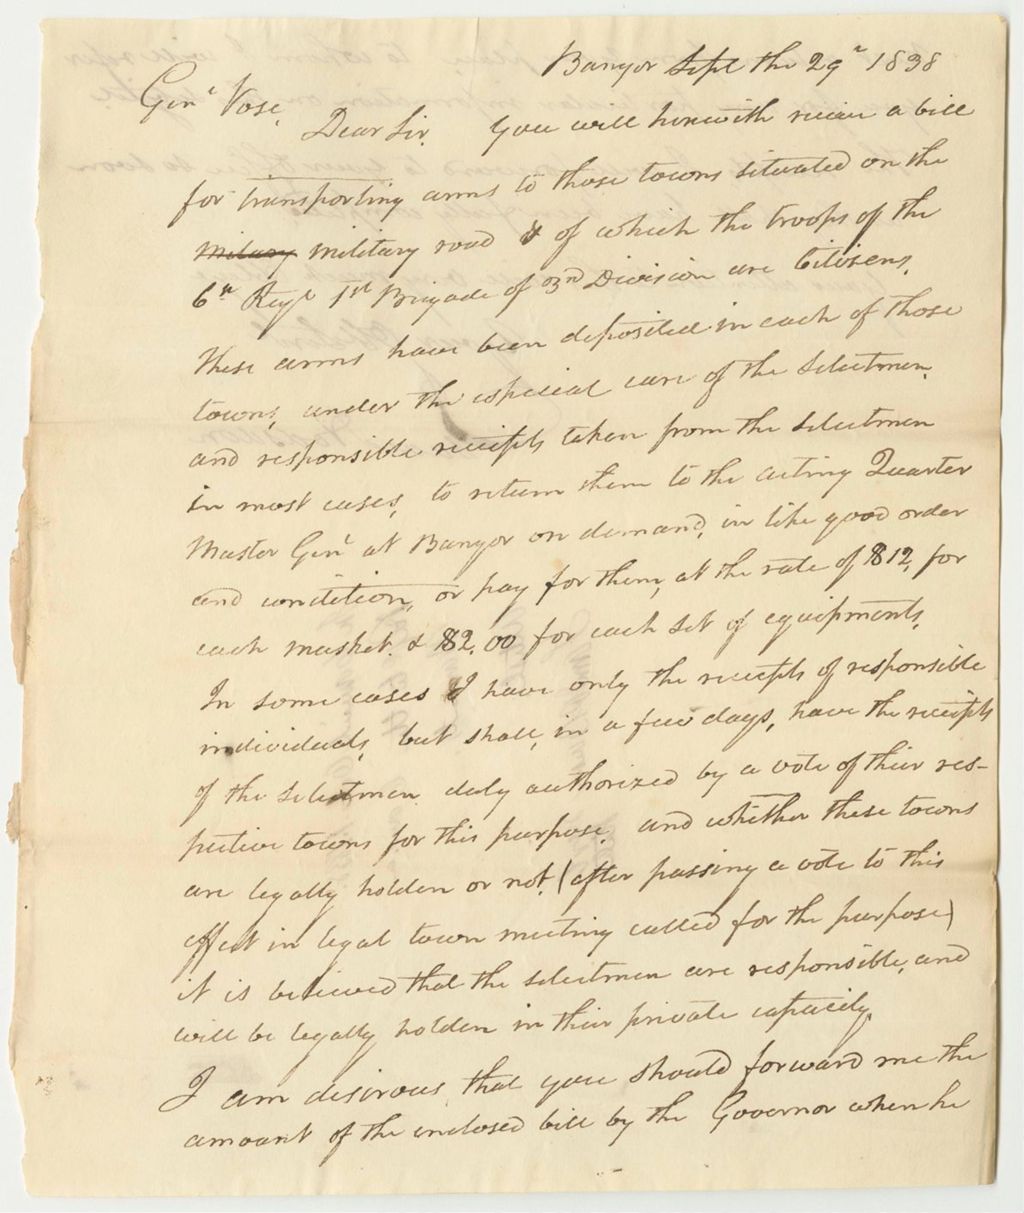 Bangor Sept the 29" 1838
Genl Vose,
Dear Sir. You will herewith receive a bill
for transporting arms to those towns situated on the
milary military road & of which the troops of the
6th Regt 1st Brigade of 3rd Division are Citisens.
these arms have been deposited in each of those
towns, under the especial care of the Selectmen,
and responsible receipts taken from the Selectmen
in most cases, to return them to the acting Quarter
Master Genl at Bangor on demand, in like good order
and condition, or pay for them, at the rate of $12, for
each musket. & $2,00 for each set of equipments.
In some cases I have only the receipts of responsible
individuals, but shall, in a few days, have the receipts
of the selectmen duly authorized by a vote of their res-
pective towns for this purpose. and whether these towns
are legally holden or not, (after passing a vote to this
effect in legal town meeting called for the purpose)
it is believed that the selectmen are responsible, and
will be legally holden in their private capacity.
I am desirous that you should forward me the
amount of the inclosed bill by the Governor when he